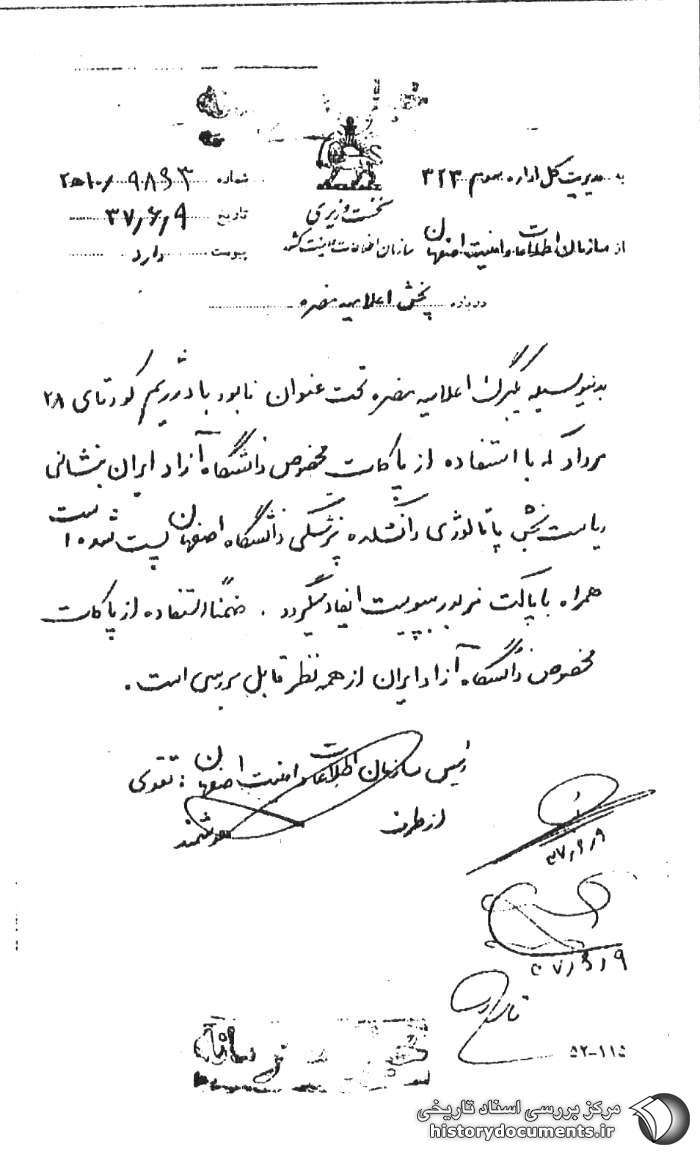 به مدیریت کل اداره سوم ۳۲۳
از سازمان اطلاعات و امنیت اصفهان
نخست وزیری
سازمان اطلاعات و امنیت کشور
شماره ۹۸۶۳
تاریخ ۳۷/۶/۹
پیوست دارد
درباره پخش اعلامیه مضره
بدینوسیله یکبرگ اعلامیه مضره تحت عنوان نابود باد رژیم کودتای ۲۸
مرداد که با استفاده از پاکات مخصوص دانشگاه آزاد ایران بنشانی
ریاست بخش پاتالوژی دانشکده پزشکی دانشگاه اصفهان پست شده است
همراه با پاکت مزبور بپیوست ایفاد میگردد . ضمناً استفاده از پاکات
مخصوص دانشگاه آزاد ایران از همه نظر قابل بررسی است .
رئیس سازمان اطلاعات و امنیت اصفهان : تقوی
از طرف
۳۷/۶/۹
۳۷/۶/۹
۵۲-۱۱۵
مرکز بررسی اسناد تاریخی
historydocuments.ir